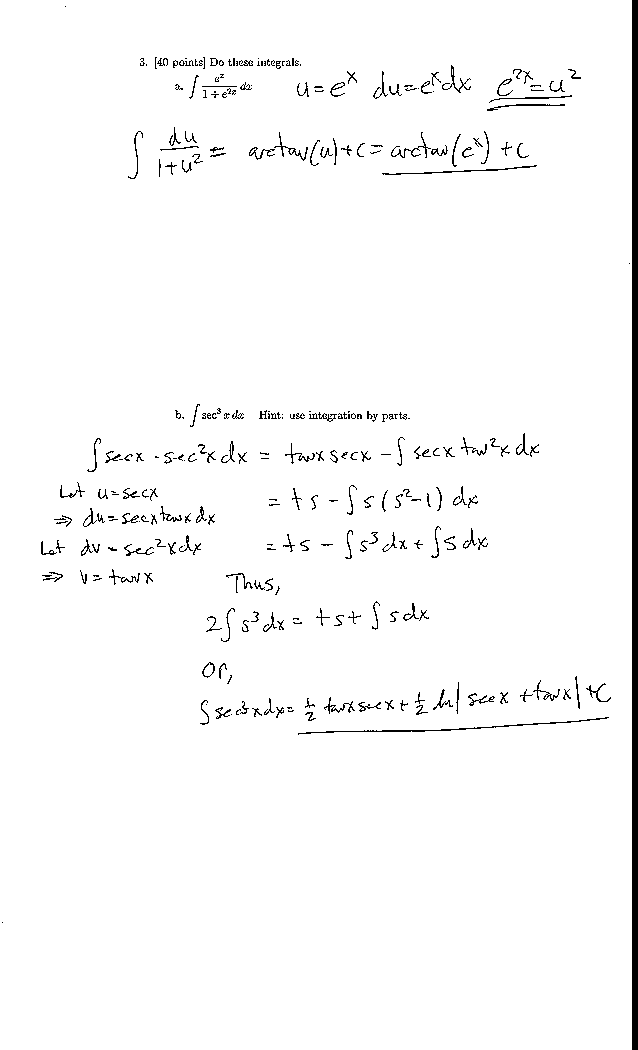 3. [40 points] Do these integrals.
a. ∫ e^x/(1+e^{2x}) dx u = e^x du = e^x dx e^{2x} = u^2
∫ du/(1+u^2) = arctan(u) + C = arctan(e^x) + C
b. ∫ sec^3 x dx Hint: use integration by parts.
∫ sec x · sec^2 x dx = tan x sec x − ∫ sec x tan^2 x dx
Let u = sec x = ts − ∫ s(s^2−1) dx
⇒ du = sec x tan x dx
Let dv = sec^2 x dx = ts − ∫ s^3 dx + ∫ s dx
⇒ v = tan x Thus,
2∫ s^3 dx = ts + ∫ s dx
Or,
∫ sec^3 x dx = 1/2 tan x sec x + 1/2 ln| sec x + tan x | + C